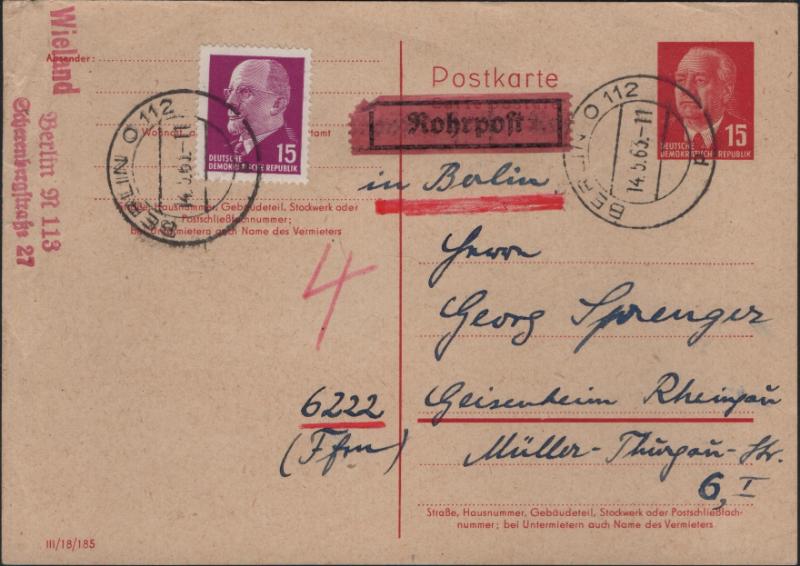 Wieland
Berlin N 113
Seerenbergstraße 27
Absender:
BERLIN O 112
14.5.63.-11
15
DEUTSCHE
DEMOKRATISCHE REPUBLIK
Straße, Hausnummer, Gebäudeteil, Stockwerk oder
Postschließfachnummer;
bei Untermietern auch Name des Vermieters
4
6222
(Ffm)
III/18/185
Postkarte
Rohrpost
in Berlin
BERLIN O 112
14.5.63.-11
15
DEUTSCHE
DEMOKRATISCHE REPUBLIK
Herrn
Georg Sprenger
Geisenheim Rheingau
Müller-Thurgau-Str.
6, I
Straße, Hausnummer, Gebäudeteil, Stockwerk oder Postschließfach-
nummer; bei Untermietern auch Name des Vermieters